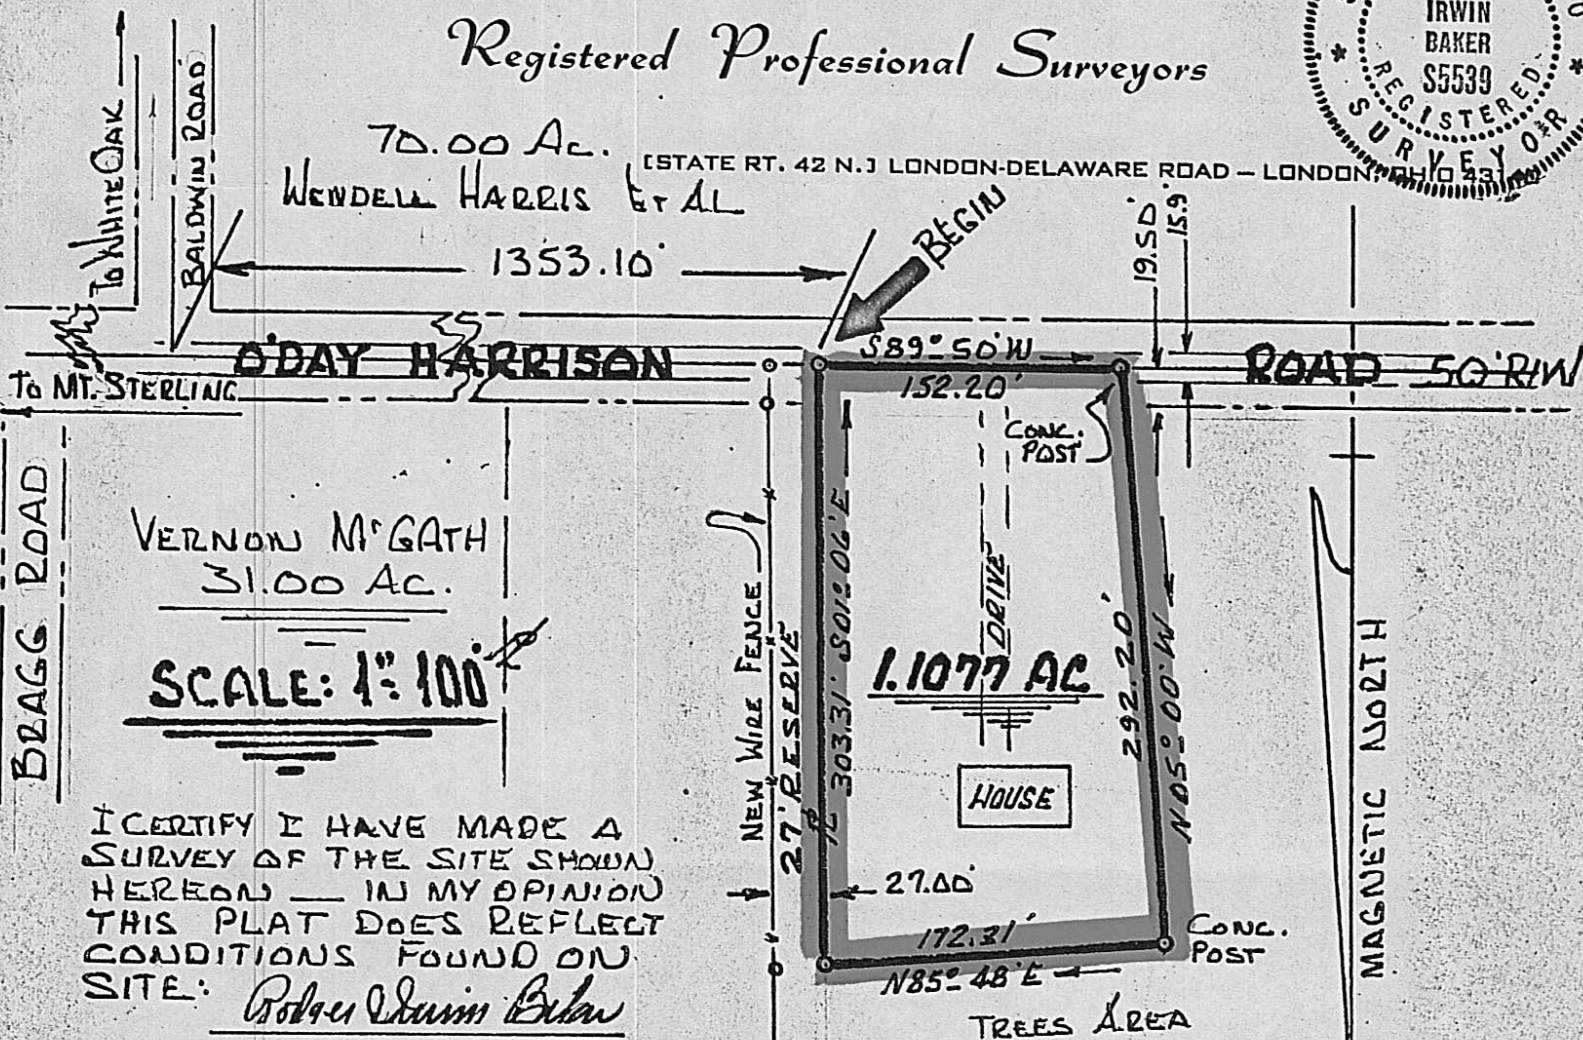 Registered Professional Surveyors
IRWIN
BAKER
S5539
REGISTERED
SURVEYOR
[STATE RT. 42 N.] LONDON-DELAWARE ROAD – LONDON, OHIO
70.00 Ac.
WENDELL HARRIS ET AL
1353.10'
TO WHITE OAK
BALDWIN ROAD
BEGIN
19.50'
15.9'
O'DAY HARRISON ROAD 50' R/W
TO MT. STERLING
S89°-50'W
152.20'
CONC.
POST
BRAGG ROAD
VERNON McGATH
31.00 AC.
SCALE: 1"= 100'
NEW WIRE FENCE
27' RESERVE
303.31' S01°-06'E
DRIVE
1.1077 AC
HOUSE
292.20'
N05°-00'W
MAGNETIC NORTH
27.00'
172.31'
N85°-48'E
CONC.
POST
TREES AREA
I CERTIFY I HAVE MADE A
SURVEY OF THE SITE SHOWN
HEREON — IN MY OPINION
THIS PLAT DOES REFLECT
CONDITIONS FOUND ON
SITE: